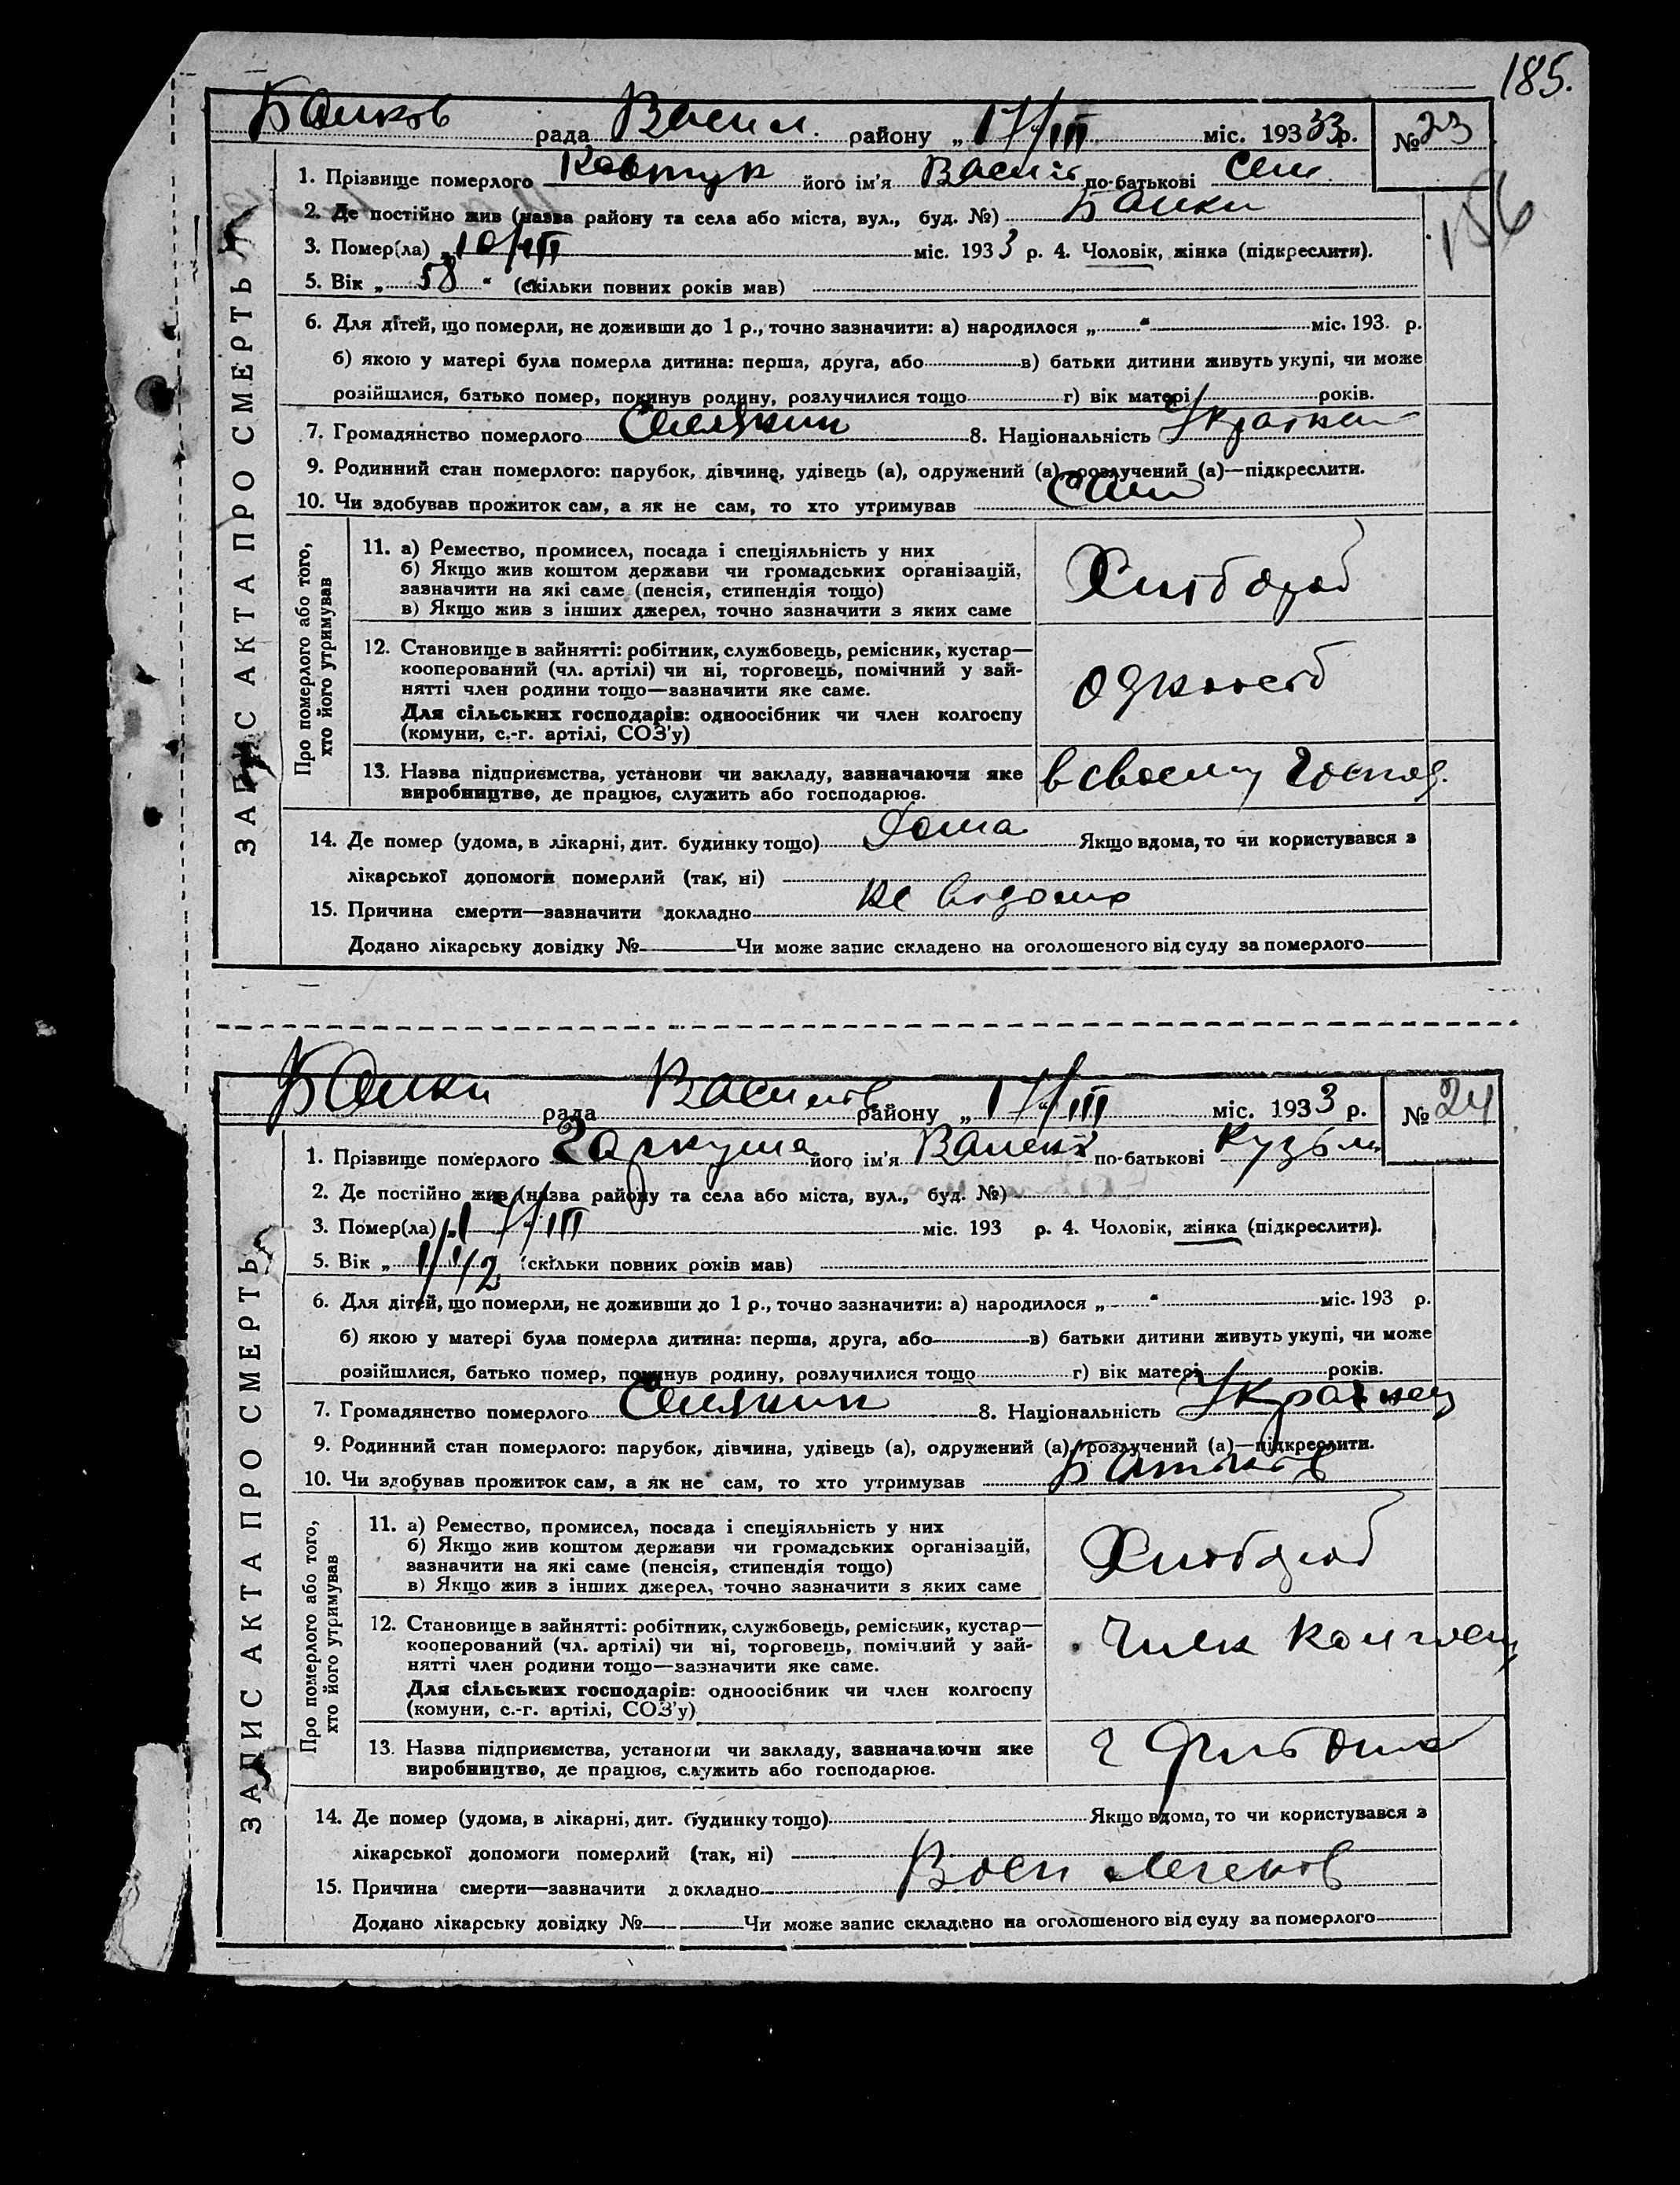 185.
рада Васил. району „ 17/III міс. 193 33 р. № 23
1. Прізвище померлого Ковтун його ім'я Василь по-батькові Сем.
2. Де постійно жив (назва району та села або міста, вул., буд. №)
3. Помер(ла) „ 10/III міс. 193 3 р. 4. Чоловік, жінка (підкреслити).
5. Вік „ 58 “ (скільки повних років мав)
6. Для дітей, що померли, не доживши до 1 р., точно зазначити: а) народилося „ “ міс. 193. р.
б) якою у матері була померла дитина: перша, друга, або в) батьки дитини живуть укупі, чи може
розійшлися, батько помер, покинув родину, розлучилися тощо г) вік матері років.
7. Громадянство померлого Селянин 8. Національність Украинец
9. Родинний стан померлого: парубок, дівчина, удівець (а), одружений (а), розлучений (а)—підкреслити.
10. Чи здобував прожиток сам, а як не сам, то хто утримував Сам
ЗАПИС АКТА ПРО СМЕРТЬ
Про померлого або того,
хто його утримував
11. а) Ремество, промисел, посада і спеціяльність у них
б) Якщо жив коштом держави чи громадських організацій,
зазначити на які саме (пенсія, стипендія тощо)
в) Якщо жив з інших джерел, точно зазначити з яких саме
Хлібороб
12. Становище в зайнятті: робітник, службовець, ремісник, кустар—
кооперований (чл. артілі) чи ні, торговець, помічний у зай-
нятті член родини тощо—зазначити яке саме.
Для сільських господарів: одноосібник чи член колгоспу
(комуни, с.-г. артілі, СОЗ'у)
13. Назва підприємства, установи чи закладу, зазначаючи яке
виробництво, де працює, служить або господарює.
в своему господ.
14. Де помер (удома, в лікарні, дит. будинку тощо) Дома Якщо вдома, то чи користувався з
лікарської допомоги померлий (так, ні)
15. Причина смерти—зазначити докладно не відомо
Додано лікарську довідку № Чи може запис складено на оголошеного від суду за померлого
рада району „ 17/III міс. 193 3 р. № 24
1. Прізвище померлого Гаркуша його ім'я по-батькові Кузьм.
2. Де постійно жив (назва району та села або міста, вул., буд. №)
3. Помер(ла) „ 17/III міс. 193 р. 4. Чоловік, жінка (підкреслити).
5. Вік „ 1 1/2 (скільки повних років мав)
6. Для дітей, що померли, не доживши до 1 р., точно зазначити: а) народилося „ “ міс. 193 р.
б) якою у матері була померла дитина: перша, друга, або в) батьки дитини живуть укупі, чи може
розійшлися, батько помер, покинув родину, розлучилися тощо г) вік матері років.
7. Громадянство померлого Селянин 8. Національність Украинец
9. Родинний стан померлого: парубок, дівчина, удівець (а), одружений (а), розлучений (а)—підкреслити.
10. Чи здобував прожиток сам, а як не сам, то хто утримував Батьков
ЗАПИС АКТА ПРО СМЕРТЬ
Про померлого або того,
хто його утримував
11. а) Ремество, промисел, посада і спеціяльність у них
б) Якщо жив коштом держави чи громадських організацій,
зазначити на які саме (пенсія, стипендія тощо)
в) Якщо жив з інших джерел, точно зазначити з яких саме
Хлібороб
12. Становище в зайнятті: робітник, службовець, ремісник, кустар—
кооперований (чл. артілі) чи ні, торговець, помічний у зай-
нятті член родини тощо—зазначити яке саме.
Для сільських господарів: одноосібник чи член колгоспу
(комуни, с.-г. артілі, СОЗ'у)
Член
13. Назва підприємства, установи чи закладу, зазначаючи яке
виробництво, де працює, служить або господарює.
14. Де помер (удома, в лікарні, дит. будинку тощо) Якщо вдома, то чи користувався з
лікарської допомоги померлий (так, ні)
15. Причина смерти—зазначити докладно Восп легенів
Додано лікарську довідку № Чи може запис складено на оголошеного від суду за померлого